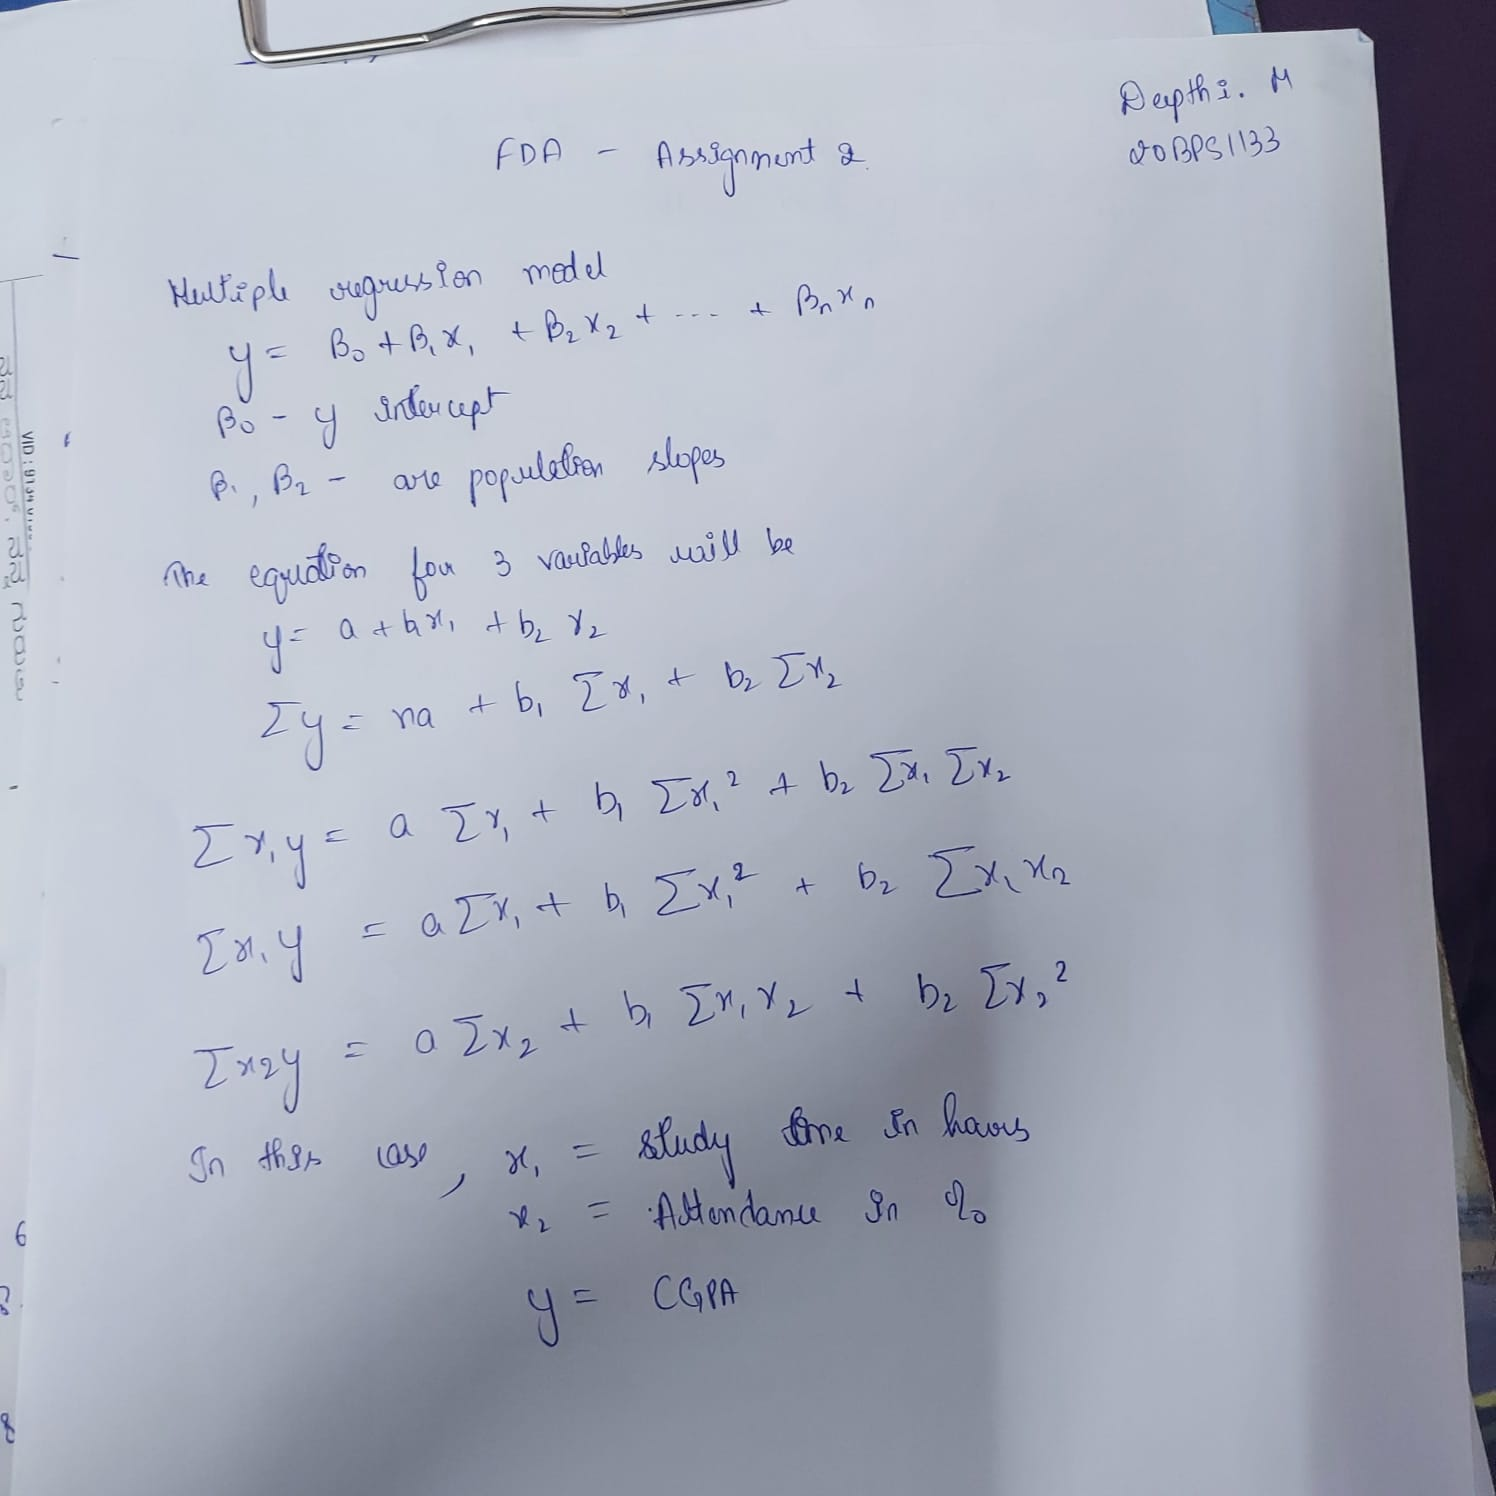 Depthi. M
20BPS1133
FDA - Assignment 2
Multiple regression model
y = B₀ + B₁x₁ + B₂x₂ + ... + Bₙxₙ
B₀ - y intercept
B₁, B₂ - are population slopes
The equation for 3 variables will be
y = a + b₁x₁ + b₂x₂
Σy = na + b₁ Σx₁ + b₂ Σx₂
Σx₁y = a Σx₁ + b₁ Σx₁² + b₂ Σx₁ Σx₂
Σx₁y = a Σx₁ + b₁ Σx₁² + b₂ Σx₁x₂
Σx₂y = a Σx₂ + b₁ Σx₁x₂ + b₂ Σx₂²
In this case, x₁ = study time in hours
x₂ = Attendance in %
y = CGPA
VID :
6
8